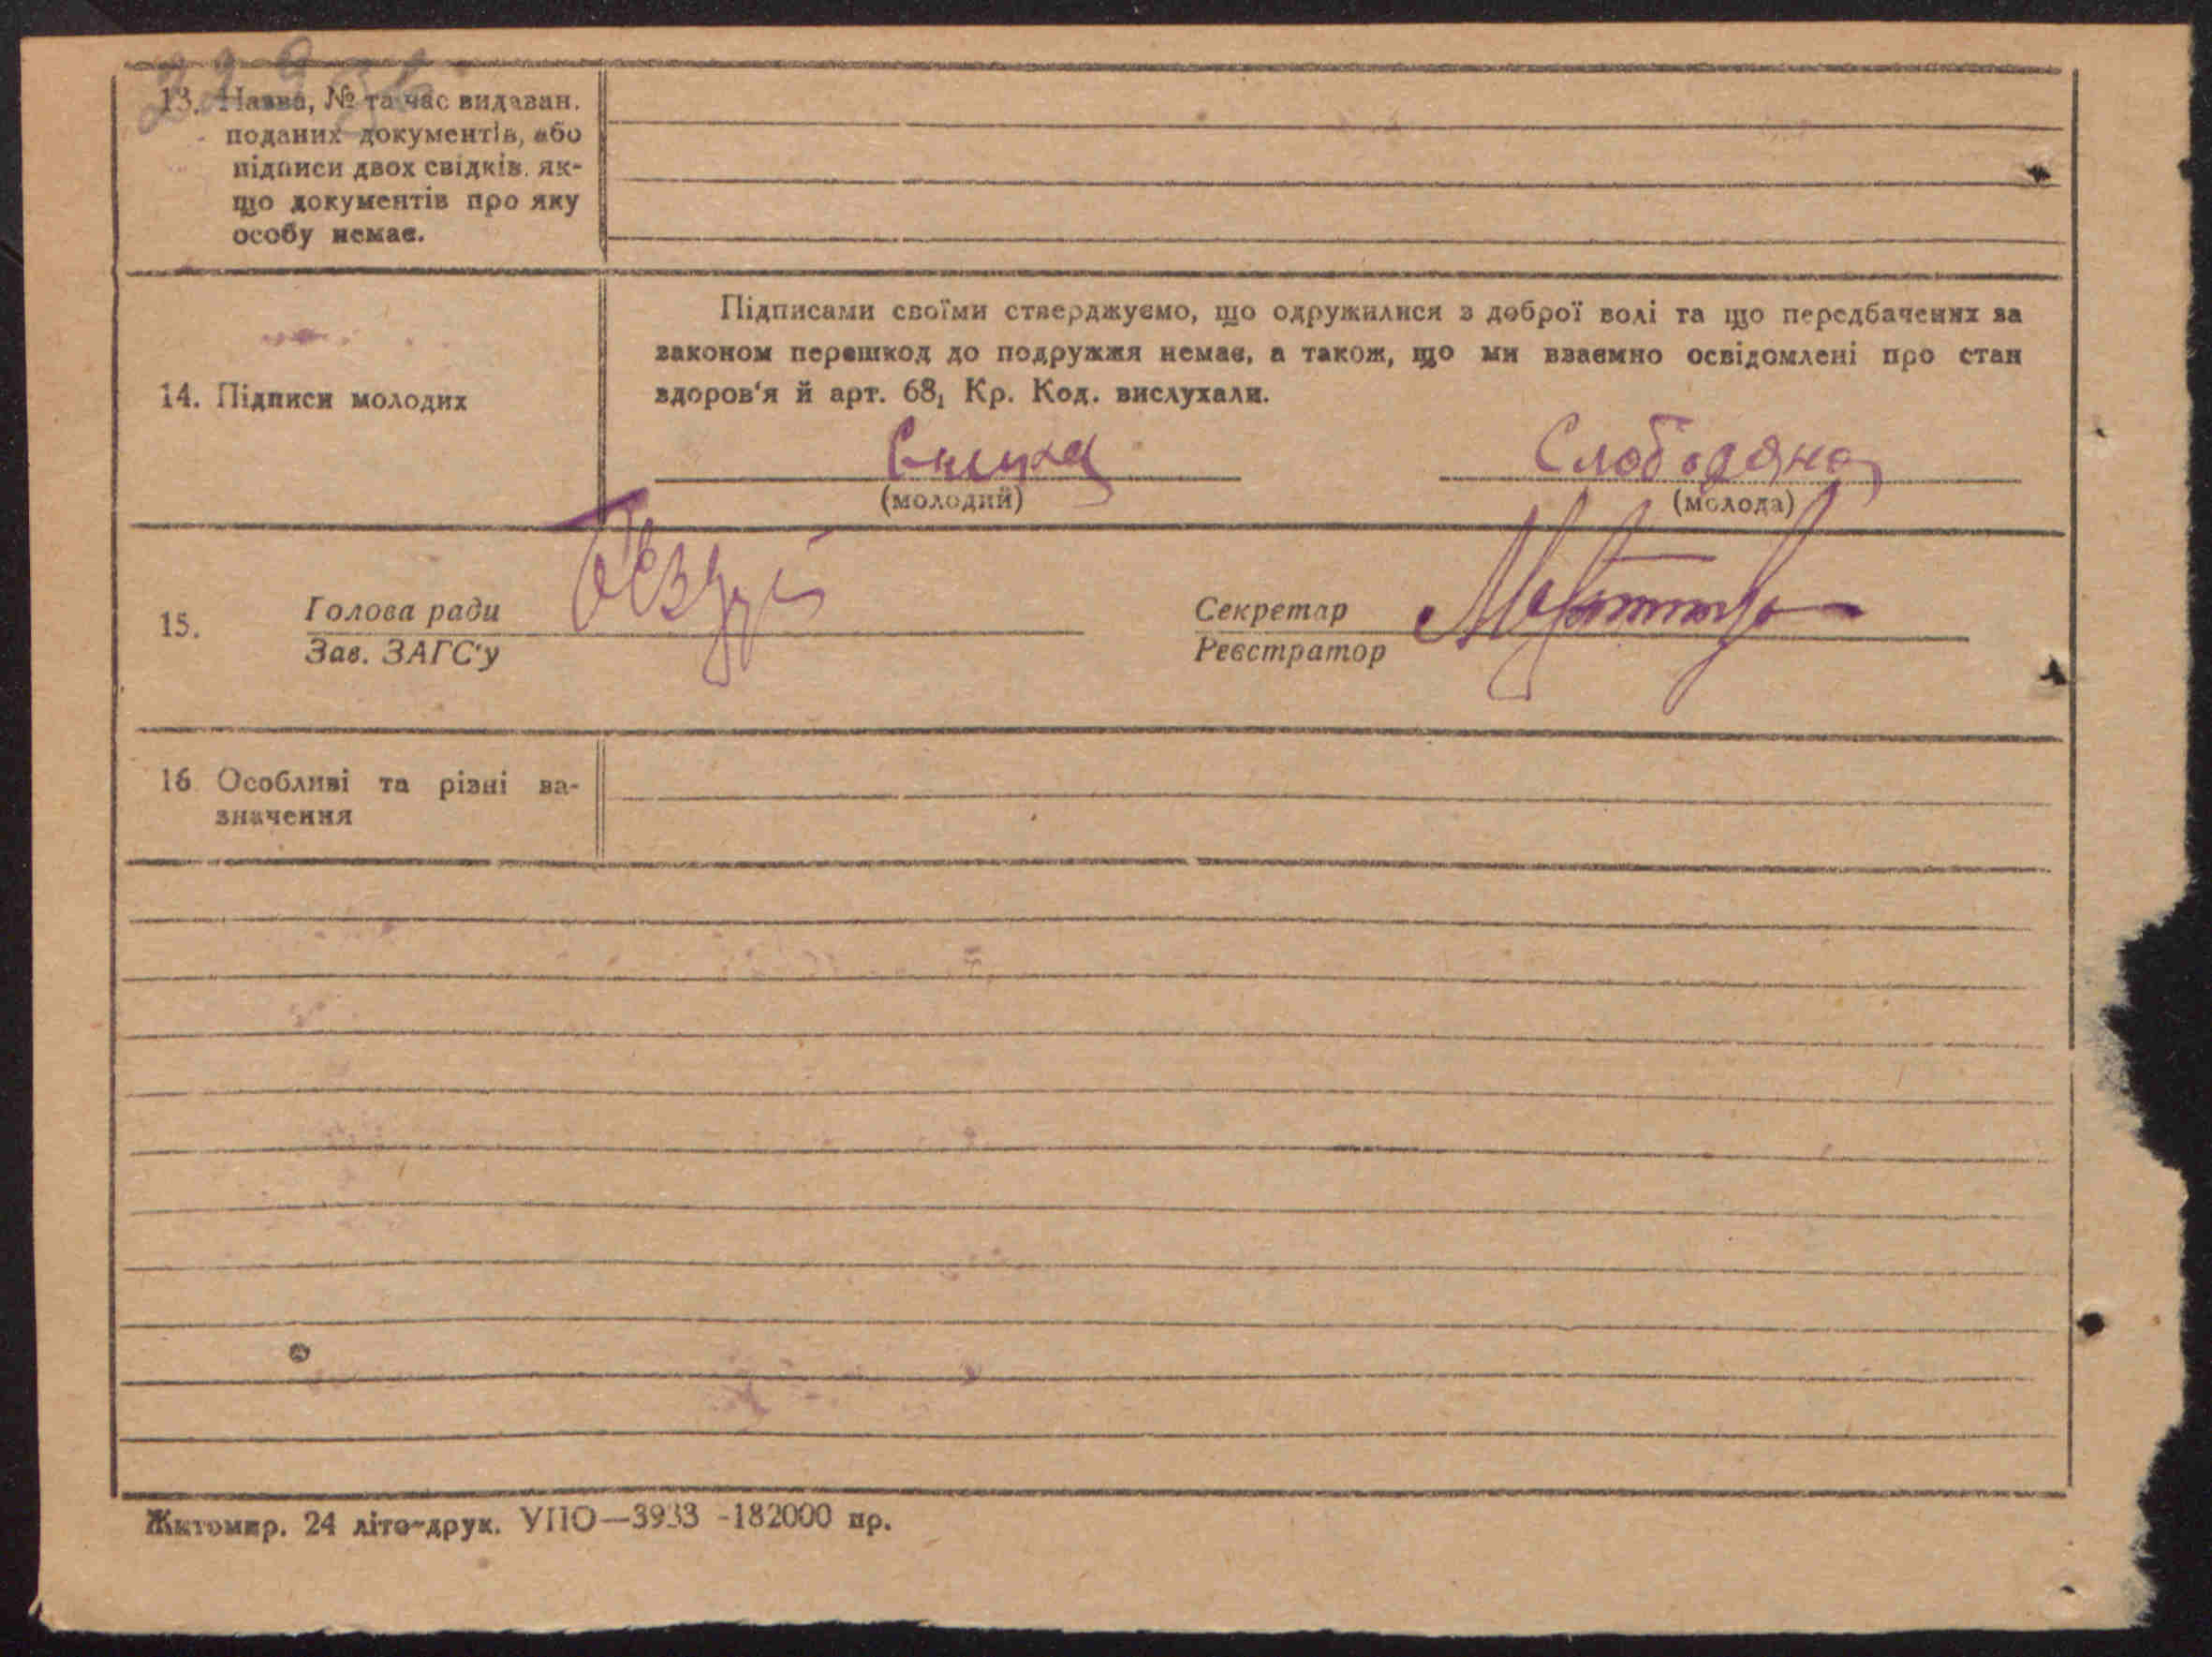 13. Назва, № та час видаван.
поданих документів, або
підписи двох свідків, як-
що документів про яку
особу немає.
Підписами своїми стверджуємо, що одружилися з доброї волі та що передбачених за
законом перешкод до подружжя немає, а також, що ми взаємно освідомлені про стан
14. Підписи молодих
здоров'я й арт. 68₁ Кр. Код. вислухали.
Слободяна
(молодий) (молода)
15. Голова ради Секретар
Зав. ЗАГС'у Реєстратор
16 Особливі та різні ва-
значення
Житомир. 24 літо-друк. УПО—3933 -182000 пр.